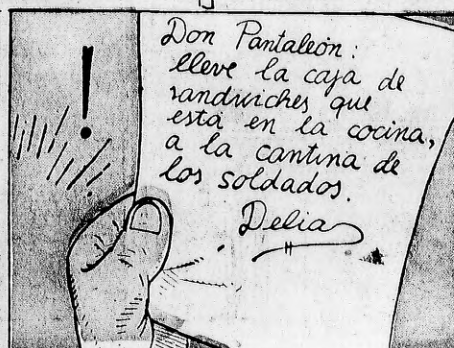 !
Don Pantaleón:
lleve la caja de
sandwiches que
está en la cocina,
a la cantina de
los soldados.
Delia